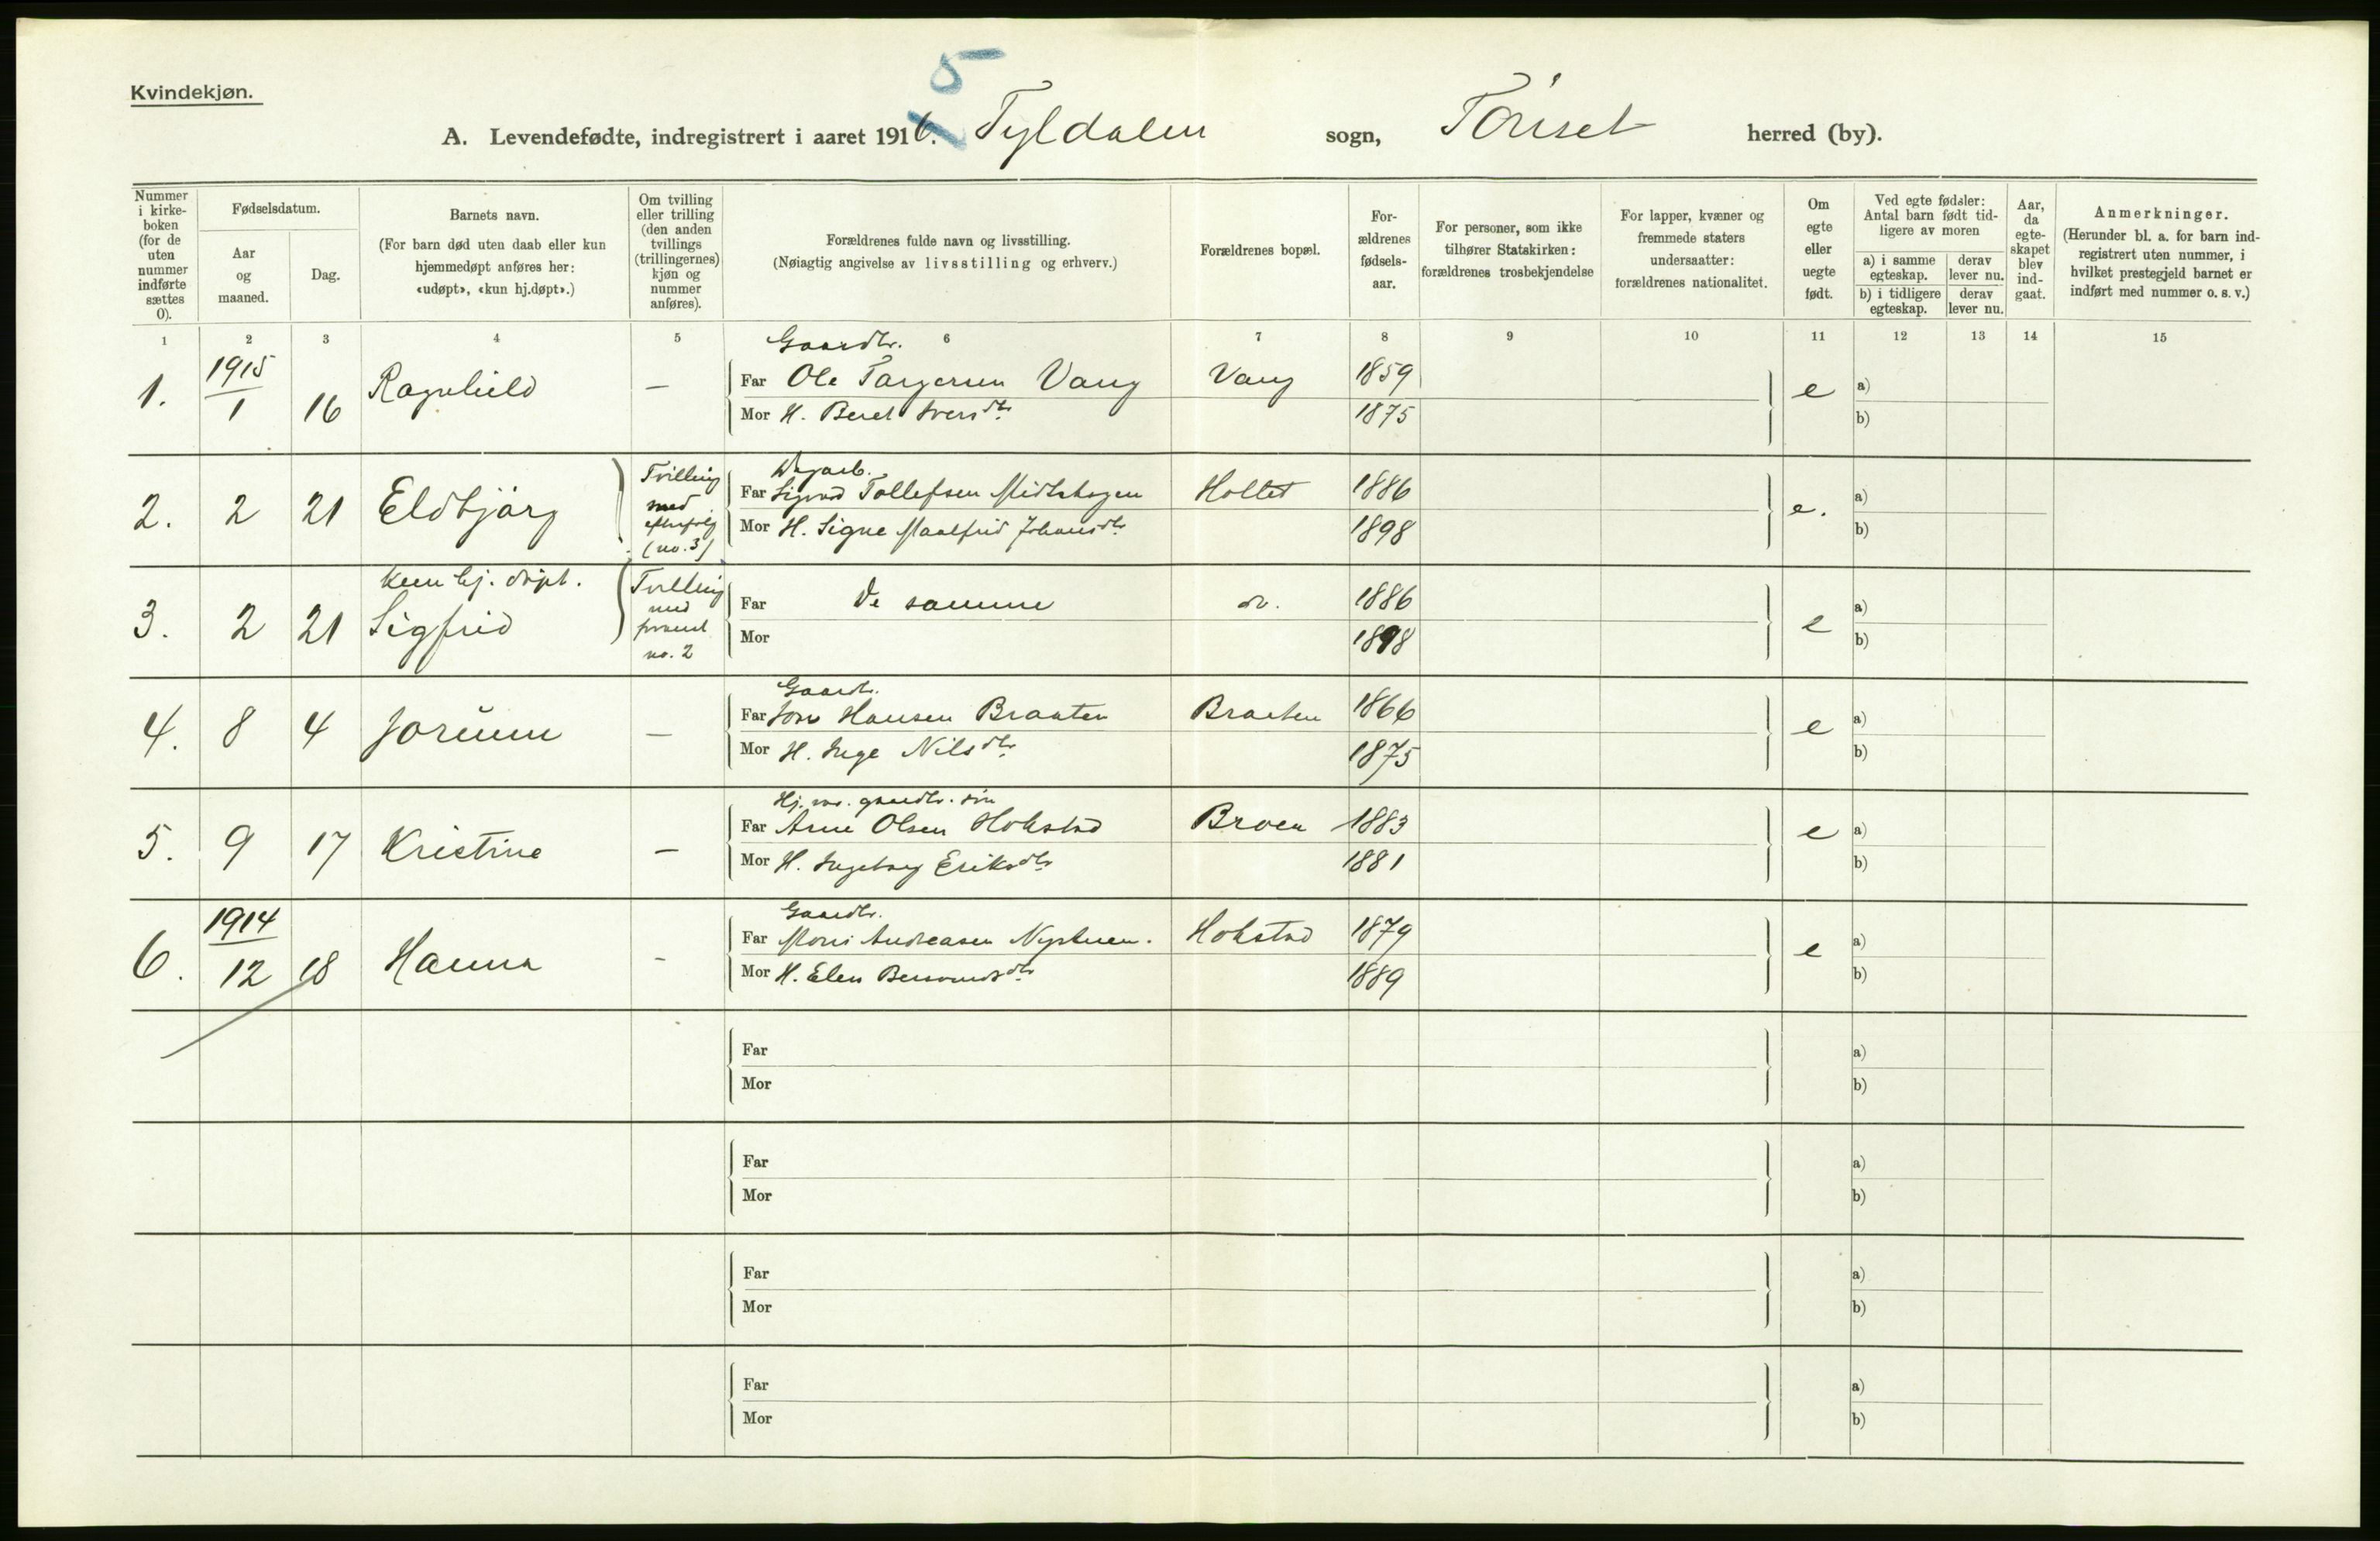 Kvindekjøn.
5
A. Levendefødte, indregistrert i aaret 1916. Tyldalen sogn, Tönset herred (by).
Nummer i kirke-boken (for de uten nummer indførte sættes 0).
Fødselsdatum.
Aar og maaned.
Dag.
Barnets navn.
(For barn død uten daab eller kun hjemmedøpt anføres her: «udøpt», «kun hj.døpt».)
Om tvilling eller trilling (den anden tvillings (trillingernes) kjøn og nummer anføres).
Forældrenes fulde navn og livsstilling.
(Nøiagtig angivelse av livsstilling og erhverv.)
Forældrenes bopæl.
For-ældrenes fødsels-aar.
For personer, som ikke tilhører Statskirken: forældrenes trosbekjendelse
For lapper, kvæner og fremmede staters undersaatter: forældrenes nationalitet.
Om egte eller uegte født.
Ved egte fødsler: Antal barn født tid-ligere av moren
a) i samme egteskap.
derav lever nu.
b) i tidligere egteskap.
derav lever nu.
Aar, da egte-skapet blev ind-gaat.
Anmerkninger.
(Herunder bl. a. for barn ind-registrert uten nummer, i hvilket prestegjeld barnet er indført med nummer o. s. v.)
1 2 3 4 5 6 7 8 9 10 11 12 13 14 15
Gaardbr.
1. 1915 1 16 Ragnhild — Far Ole Vang Vang 1859 e a)
Mor H. Beret 1875 b)
2. 2 21 Eldbjørg Tvilling med (no. 3)
Far Sigurd Tollefsen Midthagen Holtet 1886 e. a)
Mor H. Signe Johansdtr 1898 b)
Kun hj. døpt.
3. 2 21 Sigfrid Tvilling med no. 2
Far De samme 1886 e a)
Mor 1898 b)
Gaardbr.
4. 8 4 Jorunn — Far Jon Hansen Braaten Braaten 1866 e a)
Mor H. Inge Nilsdtr 1875 b)
gaardbr. søn
5. 9 17 Kristine — Far Arne Olsen Hokstad Broen 1883 e a)
Mor H. Ingeborg Eriksdtr 1881 b)
Gaardbr.
6. 1914 12 18 Hanna - Far Andreasen Nystuen. Hokstad 1879 e a)
Mor H. Elen 1889 b)
Far a)
Mor b)
Far a)
Mor b)
Far a)
Mor b)
Far a)
Mor b)